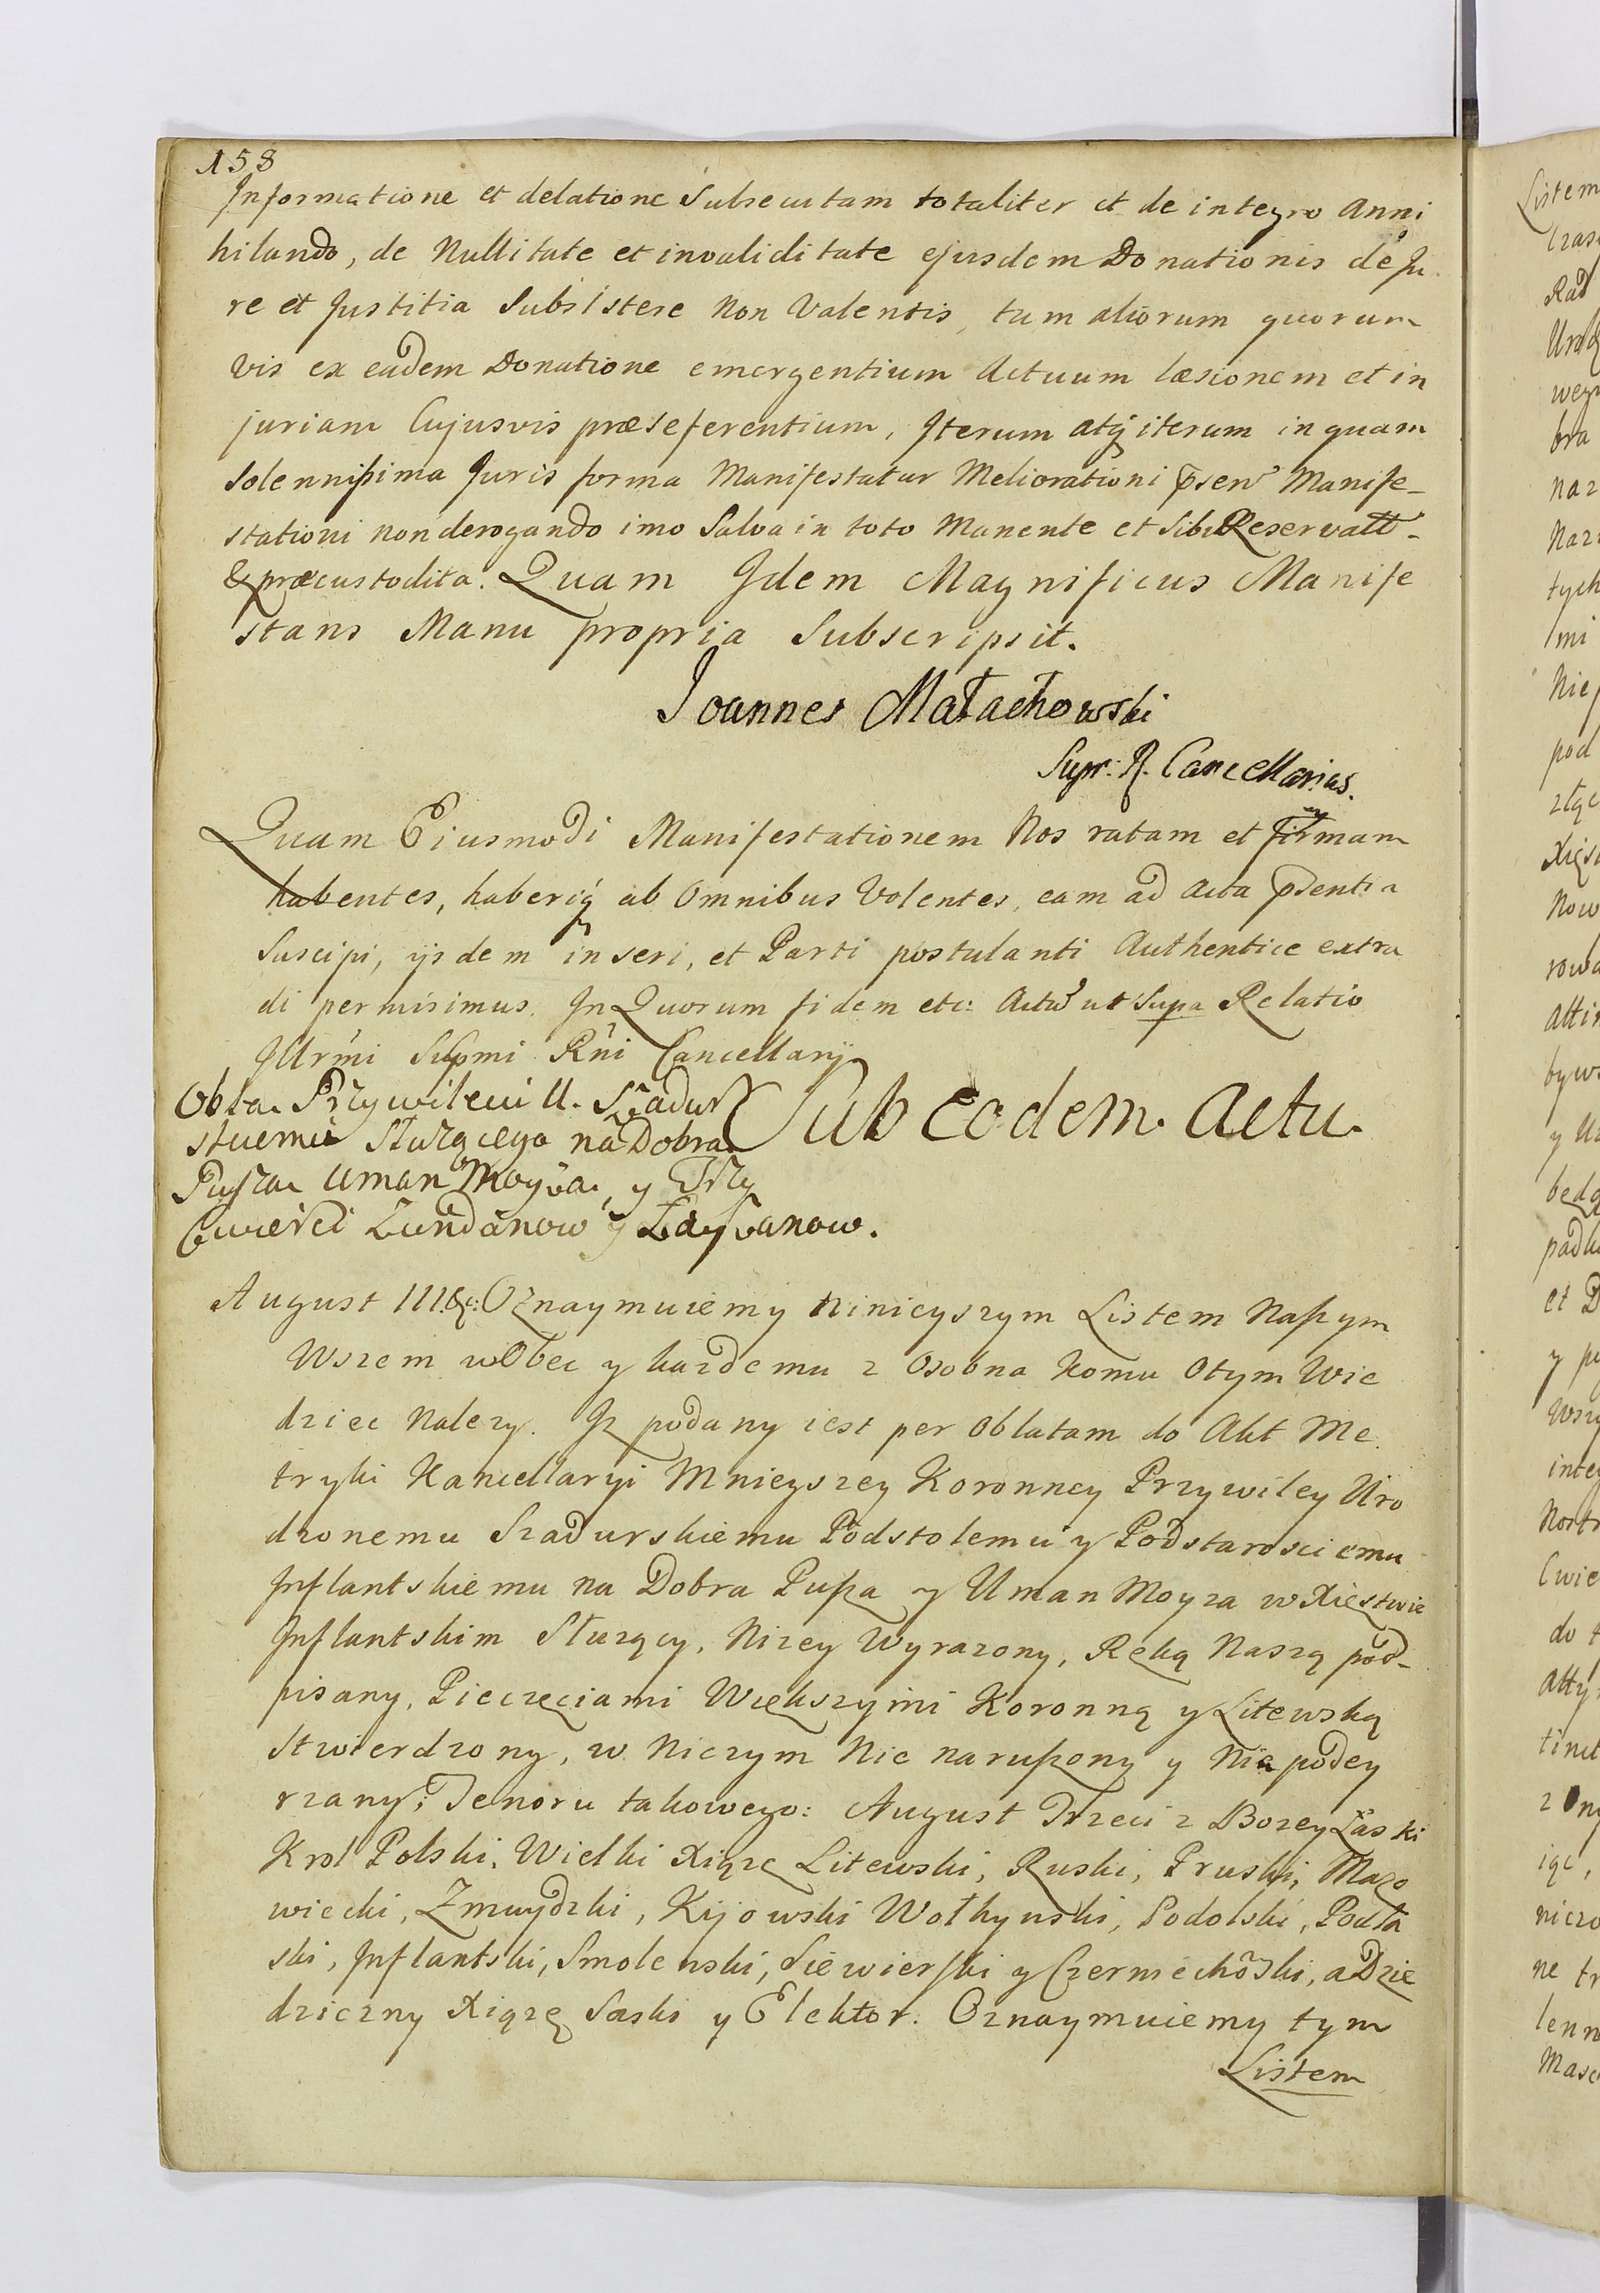 158
Informatione et delatione Subsecutam totaliter et de integro Anni
hilando, de Nullitate et invaliditate ejusdem Donationis de Ju
re et Justitia Subsistere Non Valentis, tum aliorum quorum
vis ex eadem Donatione emergentium Actuum læsionem et in
juriam Cujusvis præseferentium, Iterum atq iterum inquam
Solennissima Juris forma Manifestatur Meliorationi psen Manife-
stationi non derogando imo Salva in toto Manente et Sibi Reservatt-
& præcustodita. Quam Idem Magnificus Manife
stans Manu propria Subscripsit.
Joannes Małachowski
Supr: R. Cancellarius.
Quam Eiusmodi Manifestationem Nos ratam et firmam
habentes, haberiq ab Omnibus Volentes, eam ad Acta psentia
Suscipi, ijsdem inseri, et Parti postulanti Authentice extra
di permisimus. In Quorum fidem etc: Actu ut Supa Relatio
Illrmi Supmi Rni Cancellarij
Obla. Przywileiu U. Szadur
skiemu Służącego na Dobra
Pusza Uman Moyza, y Trzy
Cwierci Lundanow y Zaysanow.
Sub eodem Actu.
August III &c: Oznaymuiemy Ninieyszym Listem Naszym
Wszem wObec y kazdemu z Osobna Komu Otym Wie
dziec Nalezy. Iz podany iest per Oblatam do Akt Me
tryki Kancellaryi Mnieyszey Koronney Przywiley Uro
dzonemu Szadurskiemu Podstolemu y Podstarosciemu
Inflantskiemu na Dobra Pusza y Uman Moyza w Xięstwie
Inflantskim Służący, Nizey Wyrazony, Ręką Naszą pod-
pisany, Pieczęciami Większymi Koronną y Litewską
Stwierdzony, w Niczym Nie naruszony y Nie podey
rzany; Tenoru takowego: August Trzeci z Bozey Łaski
Krol Polski, Wielki Xiąze Litewski, Ruski, Pruski, Mazo
wiecki, Zmuydzki, Kijowski Wołhynski, Podolski, Podla
ski, Inflantski, Smolenski, Siewierski y Czerniechoski, a Dzie
dziczny Xiązę Saski y Elektor. Oznaymuiemy tym
Listem